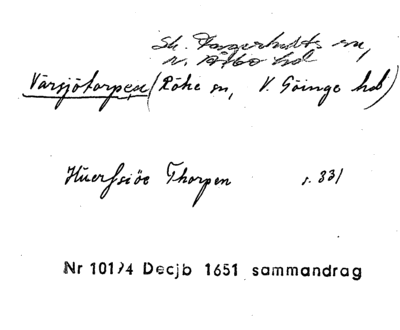 Sk. Fagerhults sn,
N. Åsbo hd
Värsjötorpen (Röke sn, V. Göinge hd)
Huerfsiöe Thorpen s. 331
Nr 10174 Decjb 1651 sammandrag